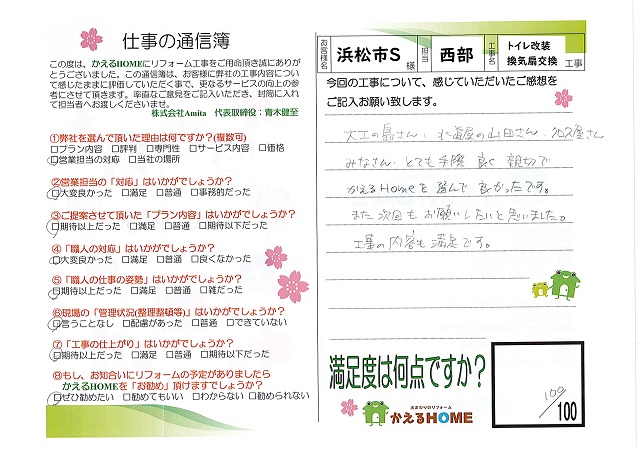 仕事の通信簿
この度は、かえるHOMEにリフォーム工事をご用命頂き誠にありが
とうございました。この通信簿は、お客様に弊社の工事内容につい
て感じたままに評価していただく事で、更なるサービスの向上の参
考にさせて頂きます。率直なご意見をご記入いただき、封筒に入れ
て担当者へお渡しくださいませ。
株式会社Amita 代表取締役:青木健至
①弊社を選んで頂いた理由は何ですか?(複数可)
□プラン内容 □評判 □専門性 □サービス内容 □価格
□営業担当の対応 □当社の場所
②営業担当の「対応」はいかがでしょうか?
□大変良かった □満足 □普通 □事務的だった
③ご提案させて頂いた「プラン内容」はいかがでしょうか?
□期待以上だった □満足 □普通 □期待以下だった
④「職人の対応」はいかがでしょうか?
□大変良かった □満足 □普通 □良くなかった
⑤「職人の仕事の姿勢」はいかがでしょうか?
□期待以上だった □満足 □普通 □雑だった
⑥現場の「管理状況(整理整頓等)」はいかがでしょうか?
□言うことなし □配慮があった □普通 □できていない
⑦「工事の仕上がり」はいかがでしょうか?
□期待以上だった □満足 □普通 □期待以下だった
⑧もし、お知合いにリフォームの予定がありましたら
かえるHOMEを「お勧め」頂けますでしょうか?
□ぜひ勧めたい □勧めてもいい □わからない □勧められない
お客様名 浜松市S 様 担当 西部 工事名 トイレ改装 換気扇交換 工事
今回の工事について、感じていただいたご感想を
ご記入お願い致します。
大工の島さん、水道屋の山田さん、クロス屋さん
みなさん とても手際 良く 親切で
かえるHomeを選んで 良かったです。
また 次回も お願いしたいと思いました。
工事の内容も満足です。
満足度は何点ですか?
100
/100
おまかせリフォーム
かえるHOME